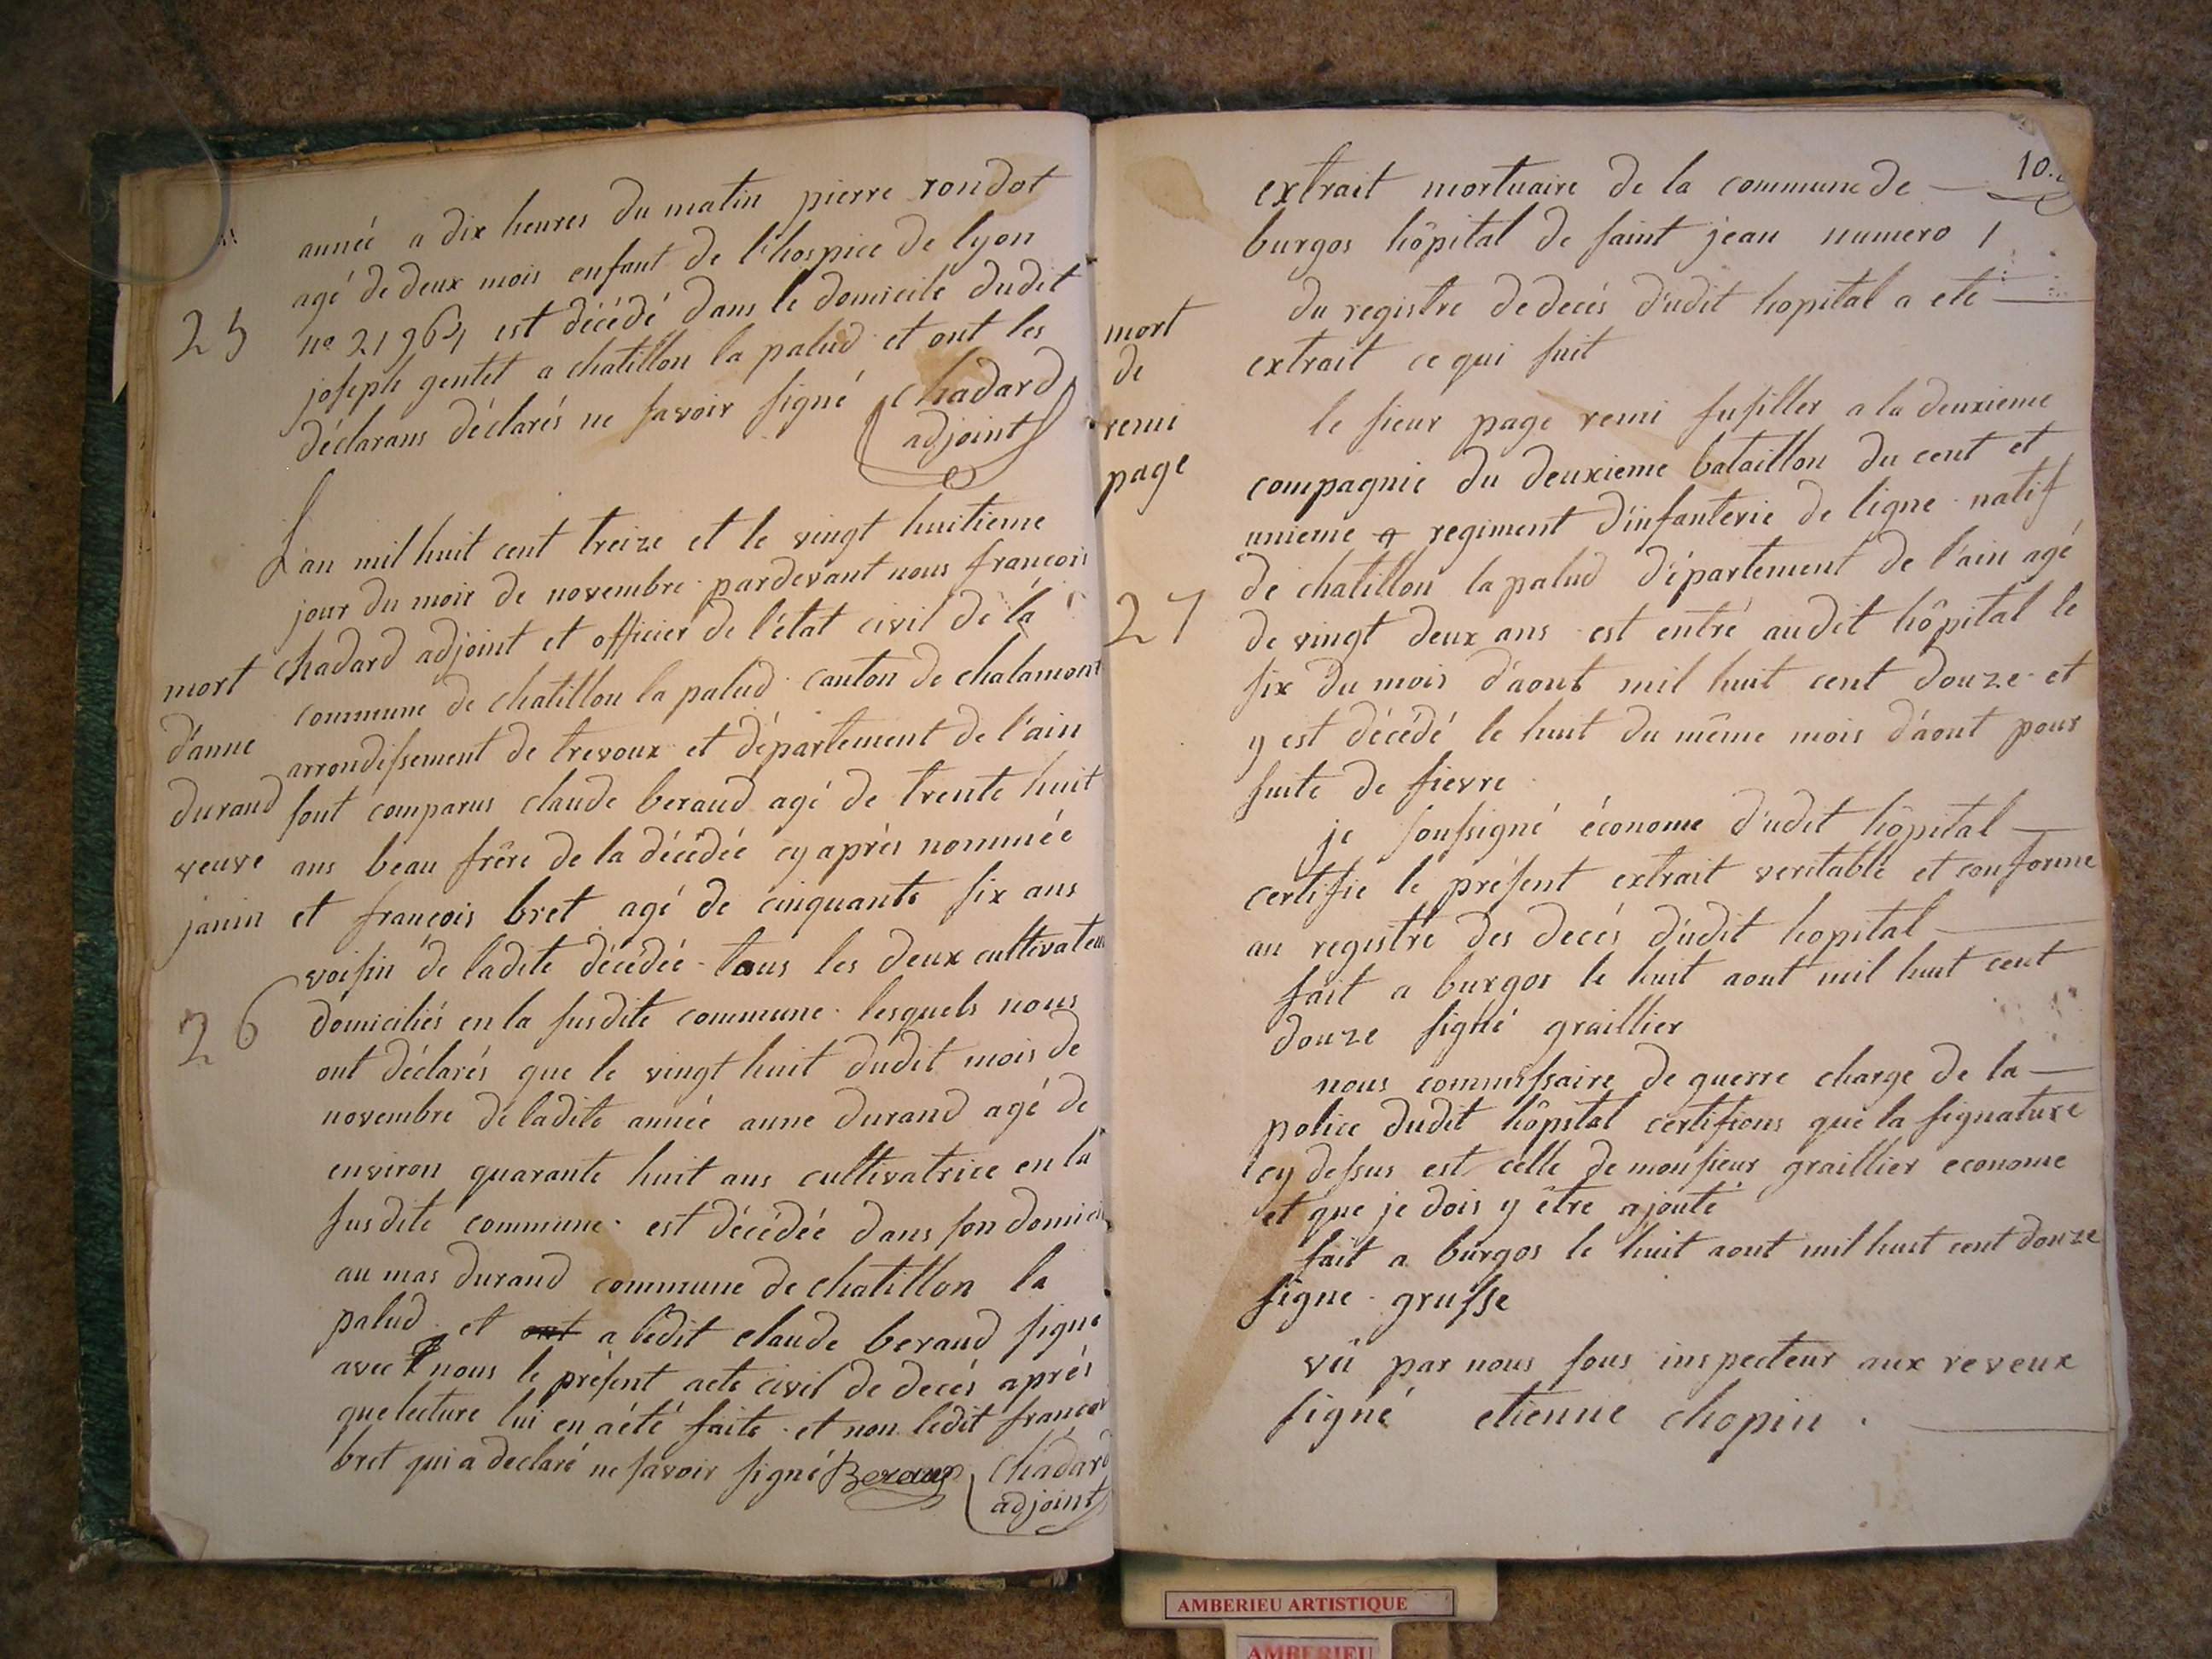 année a dix heures du matin pierre rondot
agé de deux mois enfant de l'hospice de lyon
25
no 21964 est décédé dans le domicile dudit
joseph gentet a chatillon la palud et ont les
déclarans déclarés ne savoir signé chadard
adjoint
L'an mil huit cent treize et le vingt huitieme
jour du mois de novembre pardevant nous françois
chadard adjoint et officier de l'état civil de la
commune de chatillon la palud canton de chalamont
arrondissement de trevoux et département de l'ain
sont comparus claude beraud agé de trente huit
ans beau frère de la décédée cy après nommée
et françois bret agé de cinquante six ans
voisin de ladite décédée tous les deux cultivateu
domiciliés en la susdite commune lesquels nous
ont déclarés que le vingt huit dudit mois de
novembre de ladite année anne durand agé de
environ quarante huit ans cultivatrice en la
susdite commune est décédée dans son domici
au mas durand commune de chatillon la
palud et ont a ledit claude beraud signé
avec nous le présent acte civil de decés après
que lecture lui en a été faite et non ledit françois
bret qui a declaré ne savoir signé Beraud chadard
adjoint
mort
d'anne
durand
veuve
janin
26
10.
extrait mortuaire de la commune de
burgos hôpital de saint jean numero 1
du registre de decés d'udit hopital a ete
extrait ce qui suit
mort
de
remi
page
27
le sieur page remi fusiller a la deuxieme
compagnie du deuxieme bataillon du cent et
unieme regiment d'infanterie de ligne natif
de chatillon la palud département de l'ain agé
de vingt deux ans est entré audit hôpital le
six du mois d'aout mil huit cent douze et
y est décédé le huit du même mois d'aout pour
suite de fievre
je soussigné économe d'udit hôpital
certifie le présent extrait veritable et conforme
au registre des decés d'udit hopital
fait a burgos le huit aout mil huit cent
douze signé graillier
nous commissaire de guerre charge de la
police dudit hôpital certifions que la signature
cy dessus est celle de monsieur graillier econome
et que je dois y être ajouté
fait a burgos le huit aout mil huit cent douze
signe grusse
vû par nous sous inspecteur aux reveux
signé etienne chopin .
AMBERIEU ARTISTIQUE
AMBERIEU